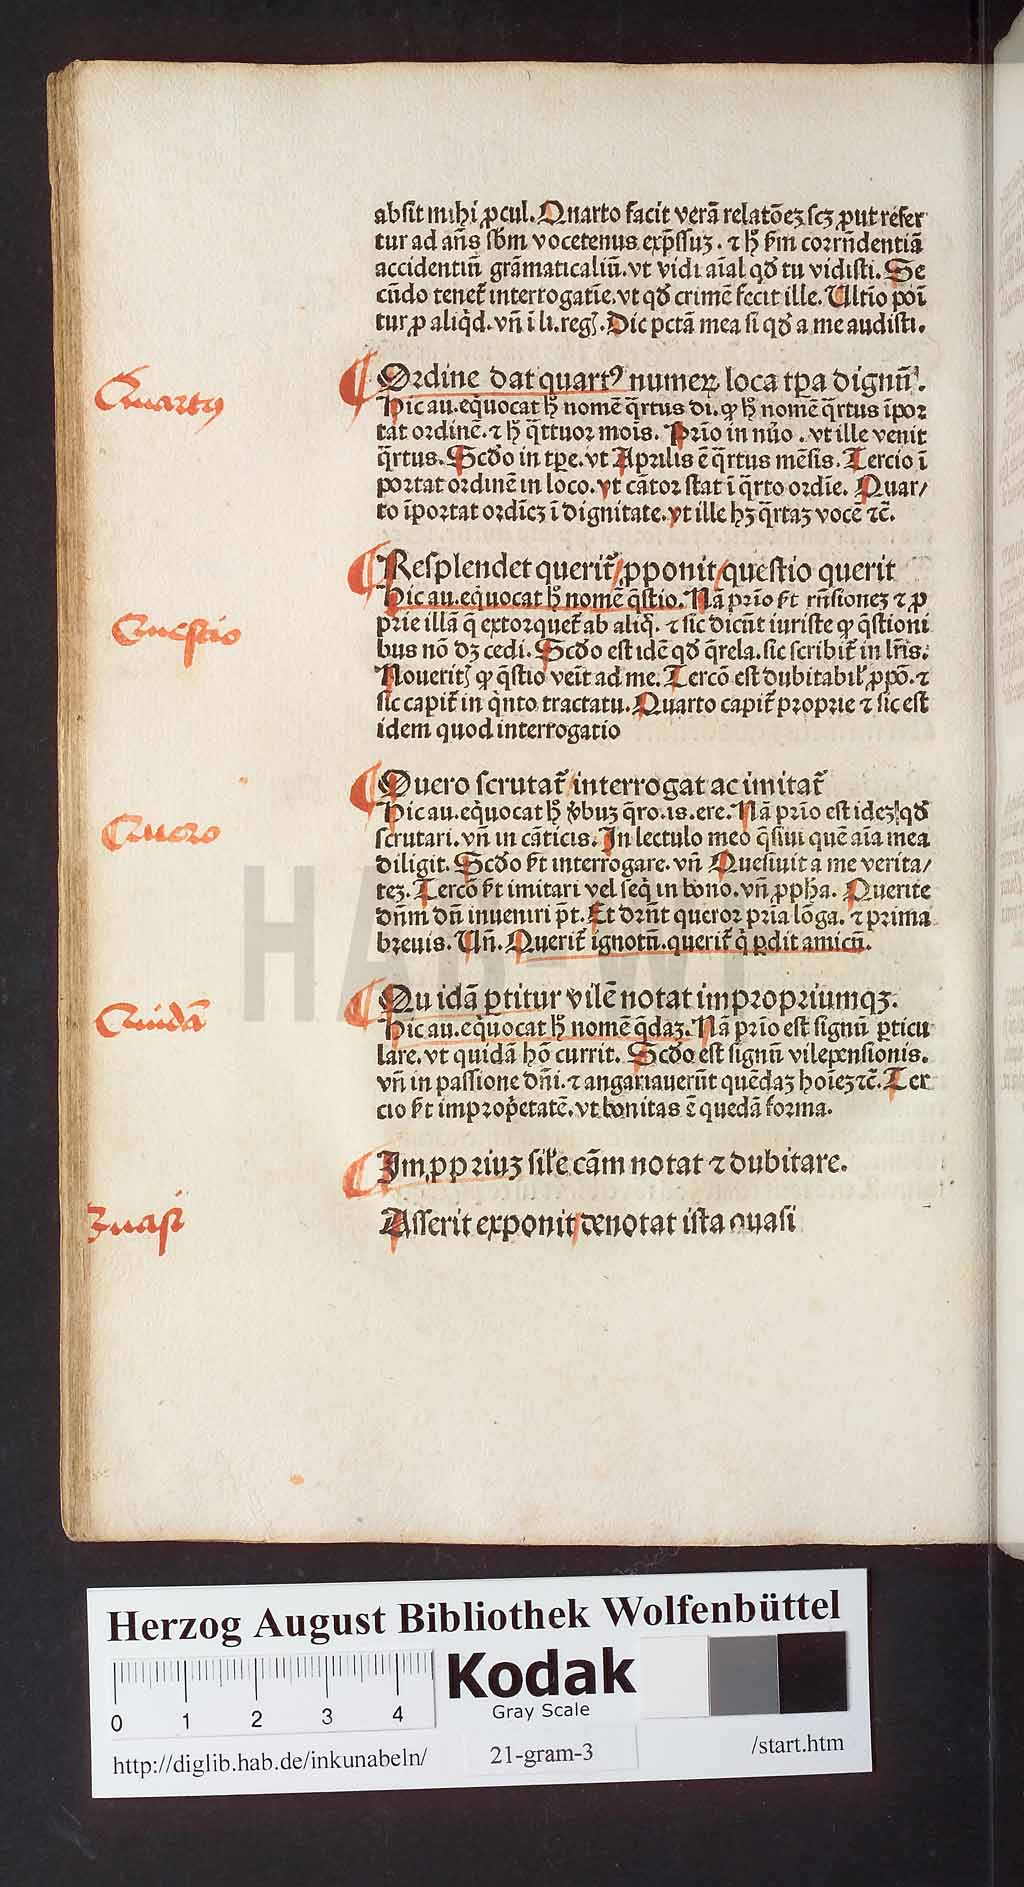 absit mihi ꝓcul. Quarto facit verā relatōeꝫ scꝫ ꝓut refer
tur ad an̄s sb̄m vocetenus exp̄ssuꝫ. ⁊ hꝰ ẜm corrn̄dentiā
accidentiū grāmaticaliū. vt vidi aīal qd̓ tu vidisti. Se
cūdo tenet̉ interrogatīe. vt qd̓ crimē fecit ille. Ultīo poī
tur ꝓ aliq̇d. vn̄ ī li. regꝭ. Dic pctā mea si qd̓ a me audisti.
Quartꝰ
Ordine dat quartꝰ numeꝝ loca tꝑa dignū.
Hic au. eq̇uocat hꝰ nomē q̄rtus di. ꝙ hꝰ nomē q̄rtus īpor
tat ordinē. ⁊ hꝰ q̄ttuor mois. Prīo in nūo. vt ille venit
q̄rtus. Scd̓o in tꝑe. vt Aprilis ē q̄rtus mēsis. Tercio ī
portat ordinē in loco. vt cātor stat ī q̄rto ordīe. Quar/
to īportat ordīeꝫ ī dignitate. vt ille hꝫ q̄rtaꝫ vocē ⁊c̄.
Questio
Resplendet querit̉/ ꝓponit/ questio querit
Hic au. eq̇uocat hꝰ nomē q̄stio. Nā prīo ẜt rn̄sioneꝫ ⁊ ꝓ
prie illā q̄ extorquet̉ ab aliq̇. ⁊ sic dicūt iuriste ꝙ q̄stioni
bus nō dꝫ cedi. Scd̓o est idē qd̓ q̄rela. sic scribit̉ in lr̄is.
Noueritꝭ ꝙ q̄stio veīt ad me. Tercō est dubitabil̓ ꝓpō. ⁊
sic capit̉ in q̇nto tractatu. Quarto capit̉ proprie ⁊ sic est
idem quod interrogatio
Quero
Quero scrutat̉/ interrogat ac imitat̉
Hic au. eq̇uocat hꝰ v̓buꝫ q̄ro. is. ere. Nā prīo est ideꝫ qd̓
scrutari. vn̄ in cāticis. In lectulo meo q̄siui quē aīa mea
diligit. Scd̓o ẜt interrogare. vn̄ Quesiuit a me verita/
teꝫ. Tercō ẜt imitari vel seq̇ in bono. vn̄ ꝓpha. Querite
dn̄m dū inueniri p̄t. Et dr̄nt queror pria lōga. ⁊ prima
breuis. Un̄. Querit̉ ignotū. querit̉ q̇ ꝑdit amicū.
Quidā
Qu idā ꝑtitur vilē notat impropriumqꝫ.
Hic au. eq̇uocat hꝰ nomē q̇daꝫ. Nā prīo est signū ꝑticu
lare. vt quidā hō currit. Scd̓o est signū vilepensionis.
vn̄ in passione dn̄i. ⁊ angariauerūt quēdaꝫ hoieꝫ ⁊c̄. Ter
cio ẜt impropͥetatē. vt bonitas ē quedā forma.
Imꝓpriuꝫ sil̓e cām notat ⁊ dubitare.
Quasi
Asserit exponit/ denotat ista quasi
Herzog August Bibliothek Wolfenbüttel
0 1 2 3 4
Kodak
Gray Scale
http://diglib.hab.de/inkunabeln/ 21-gram-3 /start.htm